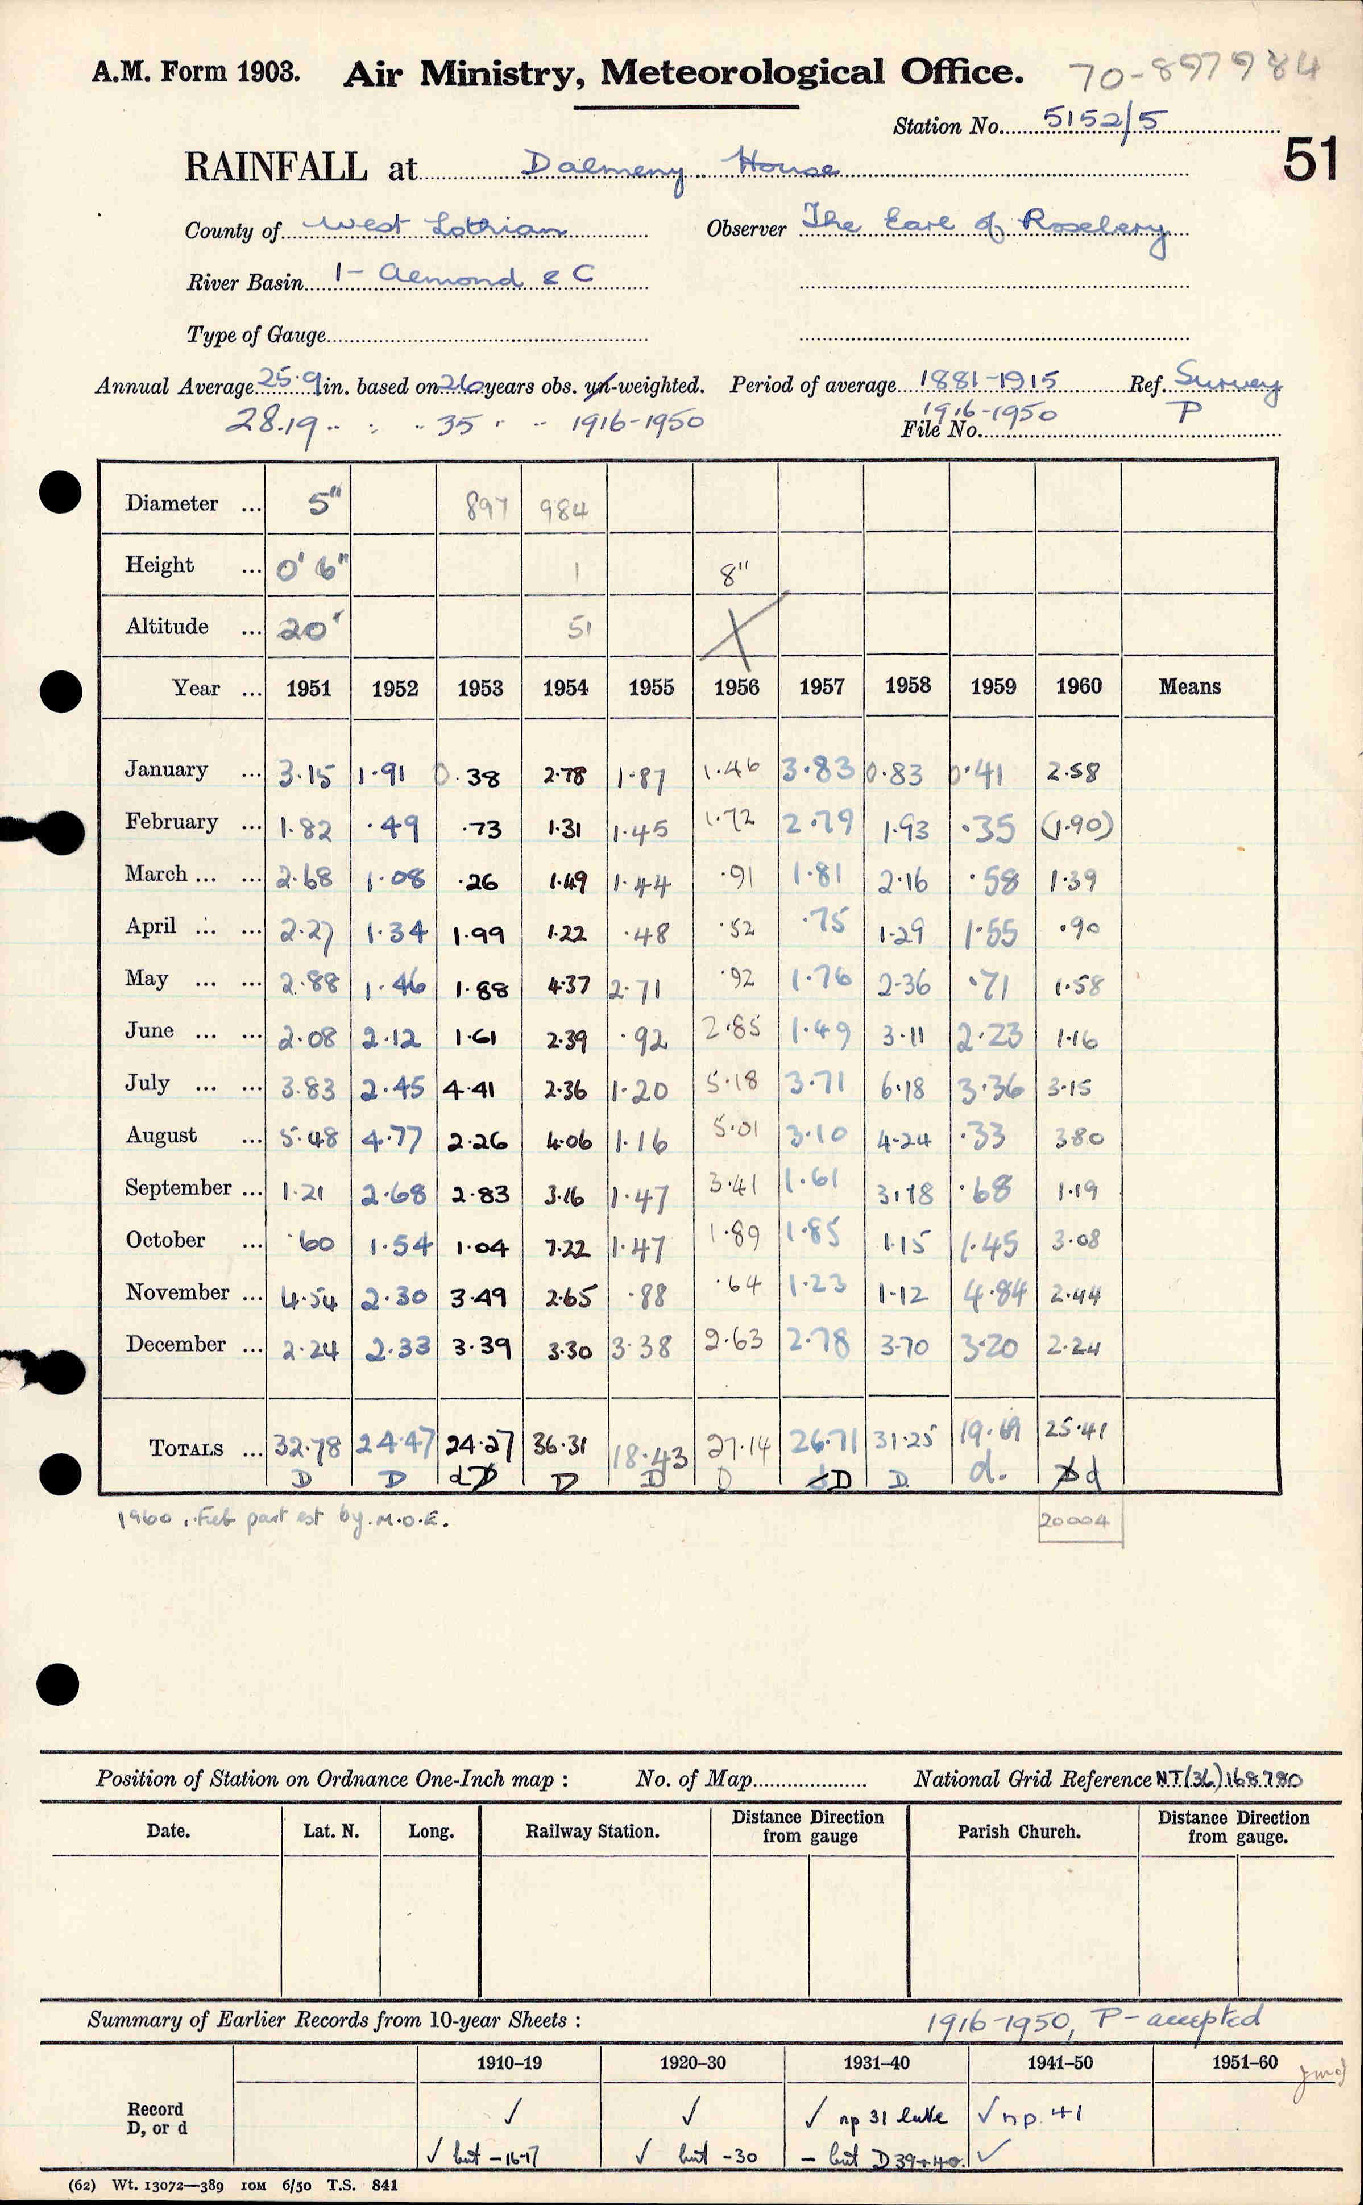 A.M. Form 1903. Air Ministry, Meteorological Office. 70-897984
Station No. 5152/5
51
RAINFALL at Dalmeny House
County of West Lothian Observer The Earl of Rosebery
River Basin 1- Almond & C
Type of Gauge
Annual Average 25.9 in. based on 26 years obs. un-weighted. Period of average 1881-1915 Ref. Survey
28.19 " : " 35 " " 1916-1950 1916-1950 P
File No.
Diameter ... 5" 897 984
Height ... 0' 6" 1 8"
Altitude ... 20' 51 X
Year ... 1951 1952 1953 1954 1955 1956 1957 1958 1959 1960 Means
January ... 3.15 1.91 0.38 2.78 1.87 1.46 3.83 0.83 0.41 2.58
February ... 1.82 .49 .73 1.31 1.45 1.72 2.79 1.93 .35 (1.90)
March ... ... 2.68 1.08 .26 1.49 1.44 .91 1.81 2.16 .58 1.39
April ... ... 2.27 1.34 1.99 1.22 .48 .52 .75 1.29 1.55 .90
May ... ... 2.88 1.46 1.88 4.37 2.71 .92 1.76 2.36 .71 1.58
June ... ... 2.08 2.12 1.61 2.39 .92 2.85 1.49 3.11 2.23 1.16
July ... ... 3.83 2.45 4.41 2.36 1.20 5.18 3.71 6.18 3.36 3.15
August ... 5.48 4.77 2.26 4.06 1.16 5.01 3.10 4.24 .33 3.80
September ... 1.21 2.68 2.83 3.16 1.47 3.41 1.61 3.18 .68 1.19
October ... .60 1.54 1.04 7.22 1.47 1.89 1.85 1.15 1.45 3.08
November ... 4.54 2.30 3.49 2.65 .88 .64 1.23 1.12 4.84 2.44
December ... 2.24 2.33 3.39 3.30 3.38 2.63 2.78 3.70 3.20 2.24
TOTALS ... 32.78 24.47 24.27 36.31 18.43 27.14 26.71 31.25 19.69 25.41
D D d D D D D d D D d. D d
1960. Feb part est by M.O.E. 20004
Position of Station on Ordnance One-Inch map : No. of Map National Grid Reference NT(36)168780
Date. Lat. N. Long. Railway Station. Distance Direction from gauge Parish Church. Distance Direction from gauge.
Summary of Earlier Records from 10-year Sheets : 1916-1950, P- accepted
1910–19 1920–30 1931–40 1941–50 1951–60
Record D, or d ✓ ✓ ✓ np 31 luke ✓ np. 41
✓ but -16-17 ✓ but -30 - but D 39+40. ✓
(62) Wt. 13072—389 10M 6/50 T.S. 841